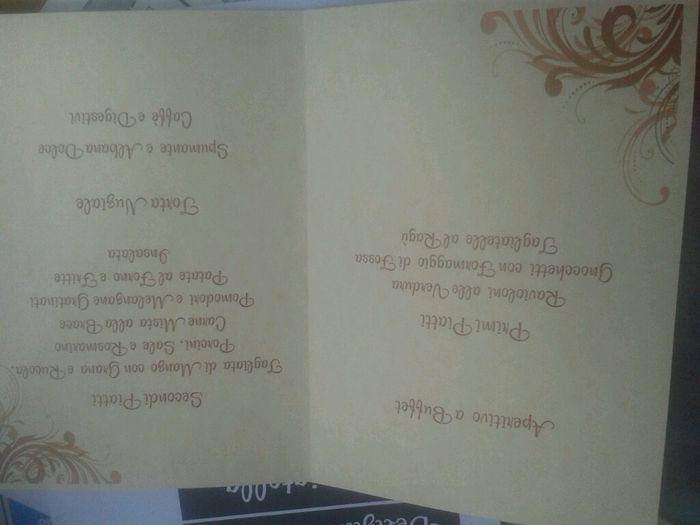 Aperitivo a Buffet
Primi Piatti
Ravioloni alle Verdura
Gnocchetti con Formaggio di Fossa
Tagliatelle al Ragù
Secondi Piatti
Tagliata di Mango con Grana e Rucola,
Porcini, Sale e Rosmarino
Carne Mista alla Brace
Pomodori e Melanzane Gratinati
Patate al Forno e Fritte
Insalata
Torta Nuziale
Spumante e Albana Dolce
Caffè e Digestivi